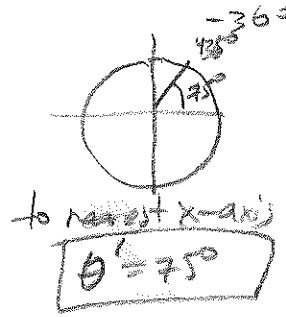 -36
435°
75°
to nearest x-axis
θ' = 75°